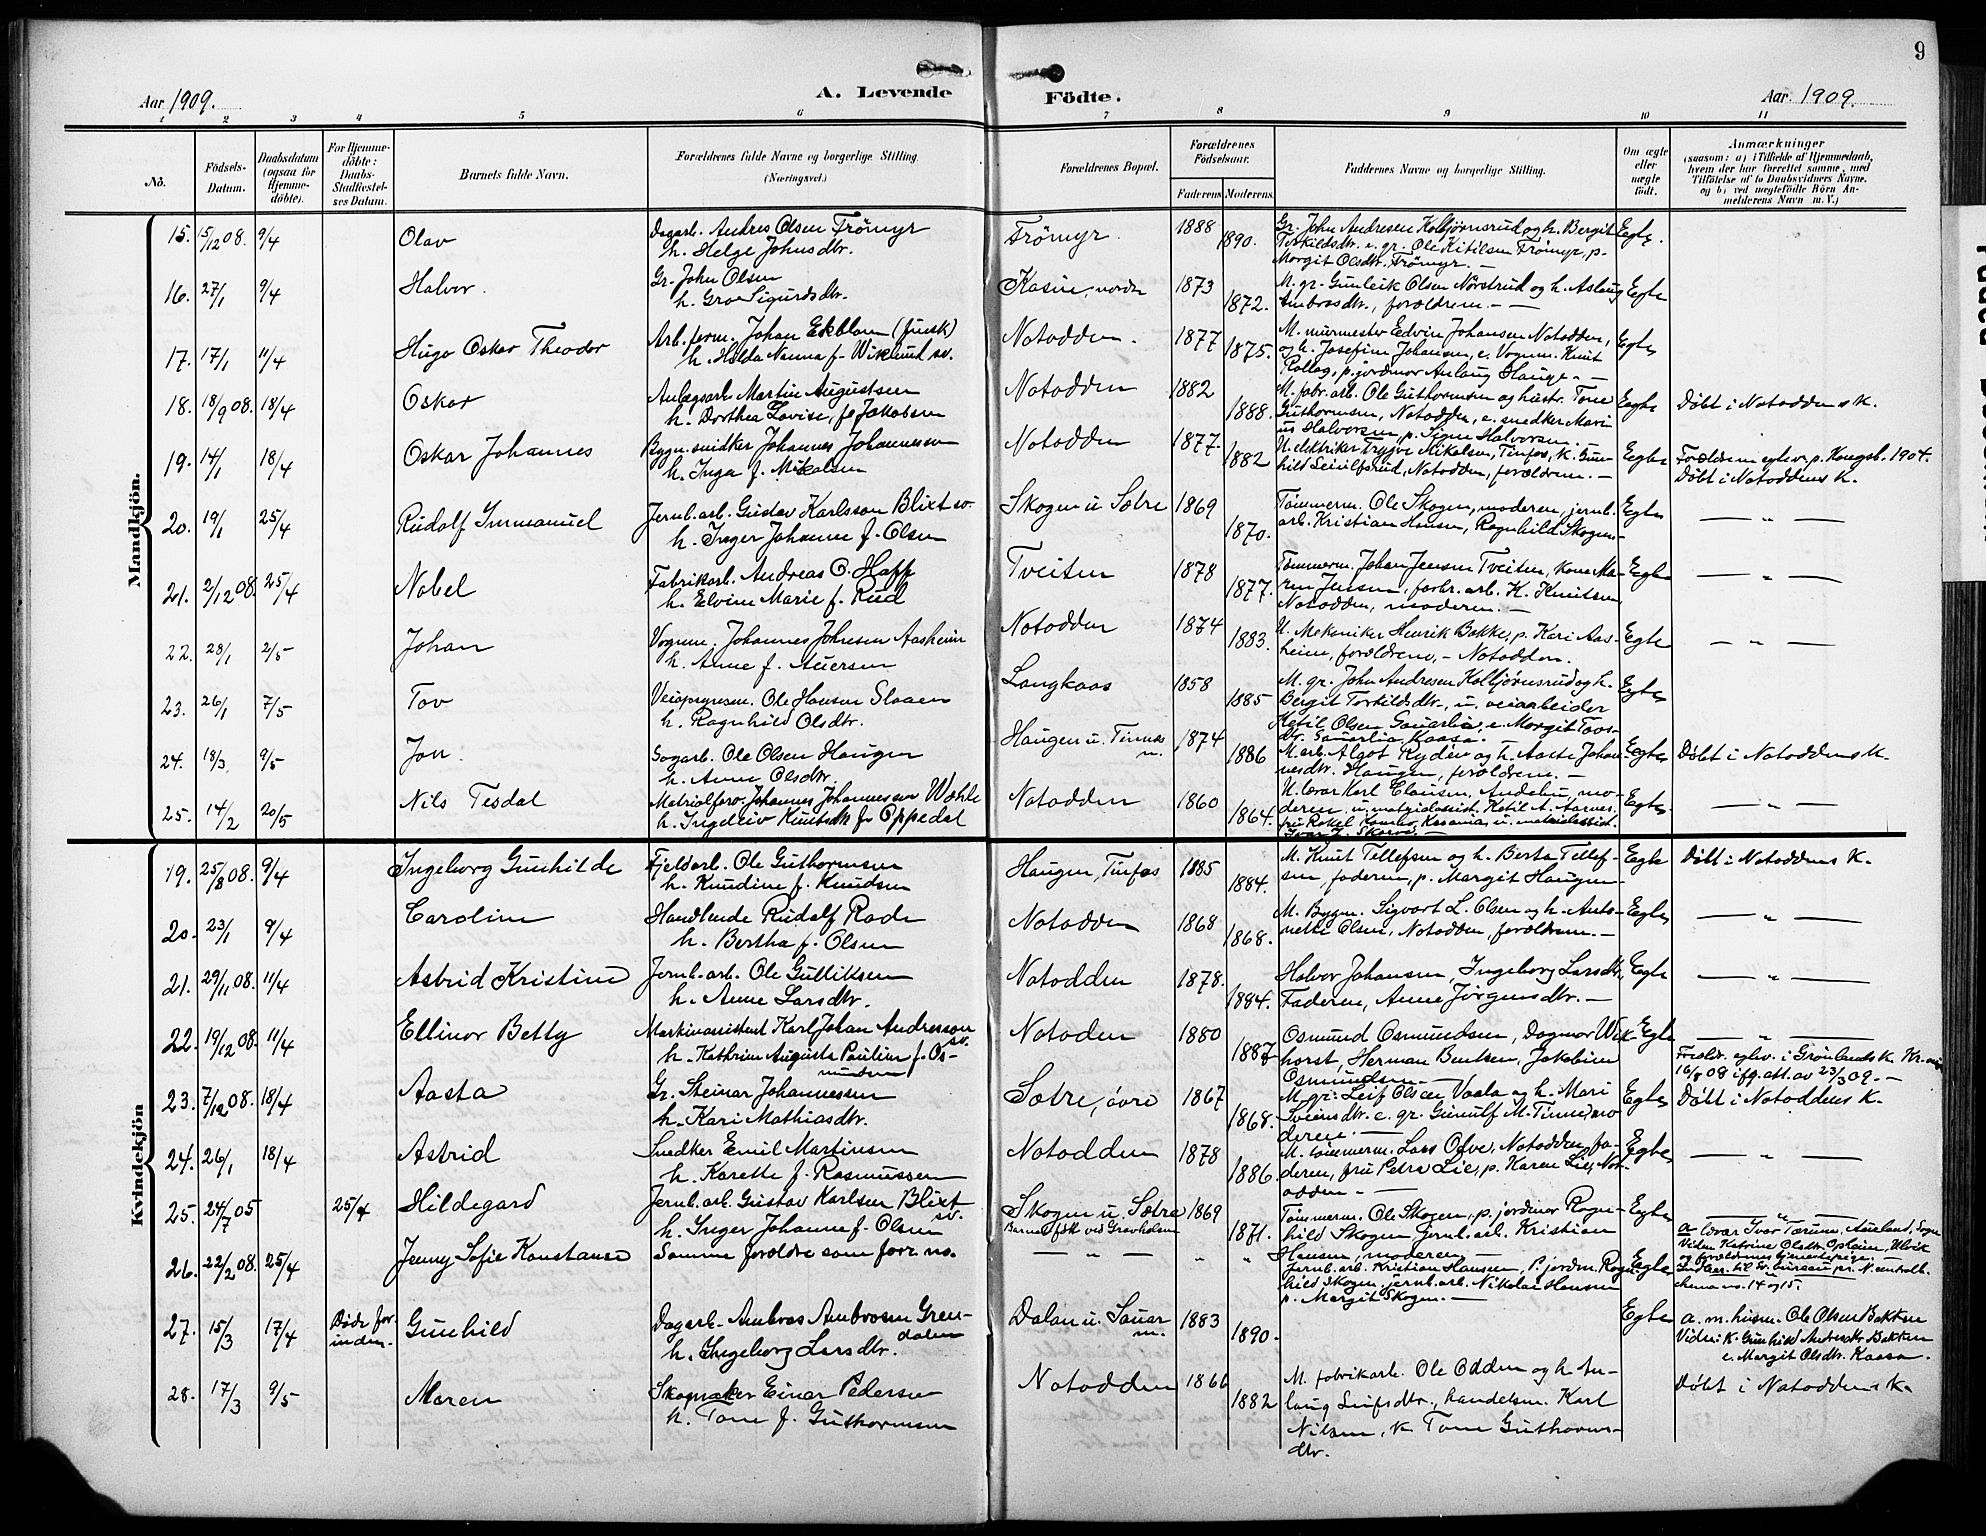 9
Aar 1909.
A. Levende Födte.
Aar 1909.
1 2 3 4 5 6 7 8 9 10 11
No.
Födsels-Datum.
Daabsdatum (ogsaa for Hjemme-döbte).
For Hjemme-döbte: Daabs-Stadfæstel-ses Datum.
Barnets fulde Navn.
Forældrenes fulde Navne og borgerlige Stilling. (Næringsvei.)
Forældrenes Bopæl.
Forældrenes Födselsaar.
Faderens Moderens
Faddernes Navne og borgerlige Stilling.
Om ægte eller uægte födt.
Anmærkninger
(saasom: a) i Tilfælde af Hjemmedaab,
hvem der har forrettet samme, med
Tilföielse af to Daabsvidners Navne.
og b) ved uægtefödte Börn An-
melderens Navn m. V.)
Mandkjön.
15. 15/12 08. 9/4 Olav
Dagarb. Andres Olsen Frömyr
h. Helge Johnsdtr.
Frömyr. 1888 1890.
Gr. John Andresen Kolbjörnsrud og h. Bergit
Torkildsdtr. e. gr. Ole Kitilsen Frömyr, p.
Margit Olsdtr. Frömyr. —
Egte.
16. 27/1 9/4 Halvor.
Gr. John Olsen
h. Gro Sigurdsdtr.
Kasin, nordre 1873 1872.
M. gr. Gunleik Olsen Nörstrud og h. Aslaug
Ambrosdtr., forældrene. —
Egte
17. 17/1 11/4 Hugo Oskar Theodor
Arb. form. Johan Ekblom (finsk)
h. Hilda Nanna f. Wiklund sv.
Notodden. 1877 1875.
M. murmester Edvin Johansen Notodden,
og h. Josefine Johansen, e. Vognm. Knut
Rollag, p. jordmor Anlaug Hauge. —
Egte
18. 18/9 08. 18/4 Oskar
Anlægsarb. Martin Augustsen
h. Dorthea Lovise, f. Jakobsen
Notodden 1882 1888.
M. fabr. arb. Ole Guthormsen og hustr. Tone
Guthormsen, Notodden, e. snedker Mari
us Halvorsen, p. Signe Halvorsen. —
Egte Döbt i Notoddens K.
19. 14/1 18/4 Oskar Johannes
Bygn. snidker Johannes Johannessen
h. Inga f. Mikalsen
Notodden 1877. 1882
U. elektriker Trygve Mikalsen, Tinfos, K. Gun-
hild Notodden, forældrene. —
Egte Forældrene egtev. p. Kongsb. 1904.
Döbt i Notoddens K.
20. 19/1 25/4 Rudolf Immanuel
Jernb. arb. Gustav Karlsson Blixt sv.
h. Inger Johanne f. Olsen
Skogen u. Sætre 1869 1870.
Tömmerm. Ole Skogen, moderen, jernb.
arb. Kristian Hansen, Ragnhild Skogen —
Egte — " —
21. 2/12 08. 25/4 Nobel
Fabrikarb. Andreas O. Hoff
h. Elvine Marie f. Rud
Tveiten 1878 1877.
Tömmerm. Johan Jensen Tveiten, kone Ma-
ren Jensen, fabr. arb. K. Knutsen
Notodden, moderen. —
Egte — " —
22. 28/1 2/5 Johan
Vognm. Johannes Johnsen Aasheim
h. Anne f. Auersen
Notodden 1874 1883.
U. Mekaniker Henrik Bakke, p. Kari Aas-
heim, forældrene, — Notodden.
Egte — " —
23. 26/1 7/5 Tov
Ole Hansen Slaaen
h. Ragnhild Olsdtr.
Langkaas 1858 1885
M. gr. John Andresen Kolbjörnsrud og h.
Bergit Torkildsdtr., u. veiarbeider
Ketil Olsen Sauarlia, e. Margit Tovs-
dtr. Sauarlia, Kaasa. —
Egte
24. 18/3 9/5 Jon
Sagarb. Ole Olsen Haugen
h. Anne Olsdtr.
Haugen u. Tinnes m. 1874 1886
M. arb. Algot Rydén og h. Aaste Johan
nesdtr. Haugen, forældrene. —
Egte Döbt i Notoddens K.
25. 14/2 20/5 Nils Tesdal
Matrialforv. Johannes Johannessen Wæhle
h. Ingeleiv Knutsdtr f. Oppedal
Notodden 1860 1864.
U. lærer Karl Clausen, Andebu, mo-
deren, u. Ketil A. Aarnes,
Egte — " —
Kvindekjön
19. 25/8 08. 9/4 Ingeborg Gunhilde
Fjeldarb. Ole Guthormsen
h. Knudine f. Knudsen
Haugen, Tinfos 1885 1884.
M. Knut Tellefsen og h. Berta Tellef-
sen, faderen, p. Margit Haugen —
Egte Döbt i Notoddens K.
20. 23/1 9/4 Caroline
Handlende Rudolf Rode
h. Bertha f. Olsen
Notodden 1868 1868.
M. Bygm. Sigvart L. Olsen og h. Anto-
nette Olsen, Notodden, forældrene. —
Egte — " —
21. 29/11 08. 11/4 Astrid Kristine
Jernb. arb. Ole Gulliksen
h. Anne Larsdtr.
Notodden 1878. 1884.
Halvor Johansen, Ingeborg Larsdtr,
Faderen, Anne Jörgensdtr. —
Egte — " —
22. 19/12 08. 11/4 Ellinor Betty
Maskinassistent Karl Johan Andresson sv.
h. Kathrine Augusta Pauline f. Os-
mundsen
Notoden 1880 1887
Osmund Osmundsen, Dagmar Wix
horst, Herman Bentsen, Jakobine
Osmundsen —
Egte — " —
Forældr. egtev. i Grönlands K. Kr.ania
16/8 08 ifg. att. av 23/3 09. —
23. 7/12 08. 18/4 Aasta
Gr. Steinar Johannessen
h. Kari Mathiasdtr.
Sætre, övre 1867 1868.
M. gr. Leif Olsen Vaala og h. Mari
Sveinsdtr. e. gr. Gunulf M. Tinne, mo
deren. —
Egte Döbt i Notoddens K.
24. 26/1 18/4 Astrid
Snedker Emil Martinsen
h. Karette f. Rasmussen
Notodden 1878 1886.
M. tömmerm. Lars Olve, Notodden, fa-
deren, fru Petra Lie, p. Karen Lie, Not-
odden. —
Egte — " —
25. 24/7 05 25/4 Hildegard
Jernb. arb. Gustav Karlsen Blixt sv.
h. Inger Johanne f. Olsen
Skogen u. Sætre
Barnet födt ved Gravhalsen
1869 1871.
Tömmerm. Ole Skogen, p. jordmor Ragn-
hild Skogen, jernb. arb. Kristian
Hansen, moderen —
Egte — " —
a lærer Ivar Aurland, Sogn
Vidne Katrine Olsdtr. Opheim, Ulvik
og forældrenes tjenestepige.
26. 22/2 08. 25/4 Jenny Sofie Konstanse
Samme forældre som forr. no.
— " — " "
Jernb. arb. Kristian Hansen, P. jordm. Ragn
hild Skogen, jernb. arb. Nikolai Hansen
p. Margit Skogen. —
Egte
Indber. til Sv. bureau pr. N. centralb.
skema no. 14 og 15.
27. 15/3 17/4 Döde for-inden. Gunhild
Dagarb. Ambros Ambrosen Gren-
dalen
h. Ingeborg Larsdtr.
Dalen u. Sauar m. 1883 1890.
Egte a. m. husm. Ole Olsen Bakken
Vidne: K. Gunhild Andresdtr Bakken
e. Margit Olsdtr. Kaasa.
28. 17/3 9/5 Maren
Skomaker Einar Pedersen
h. Tone f. Guthormsen
Notodden 1866 1882
M. fabrikarb. Ole Odden og h. An-
laug Leifsdtr., handelsm. Karl
Nilsen, K. Tone Guthorms-
dtr.
Döbt i Notoddens K.